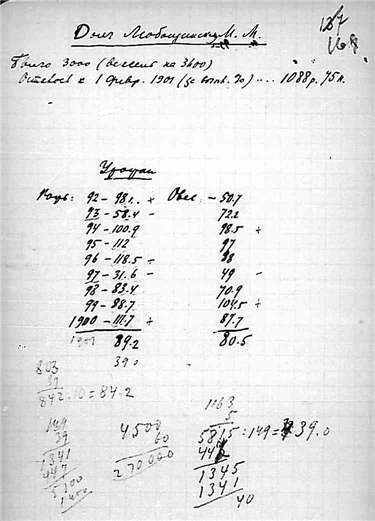 Долг Любощинск. М. М.
167
168
Было 3000 (вексель на 3600)
Осталось к 1 Февр. 1901 (за %) .... 1088 р. 75 к.
Урожаи
Рожь: 92 – 98 + Овес – 50.7
93 – 58.4 – 72.2
94 – 100.9 98.5 +
95 – 112 97
96 – 118.5 – 98
97 – 31.6 – 49 –
98 – 83.4 70.9
99 – 88.7 104.5 +
1900 – 111.7 + 87.7
1901 89.2 80.5
390
842:10=84.2
1163
5
149 4500 5815:149=39.0
39 60 447
1341 270000 1345
447 1341
40